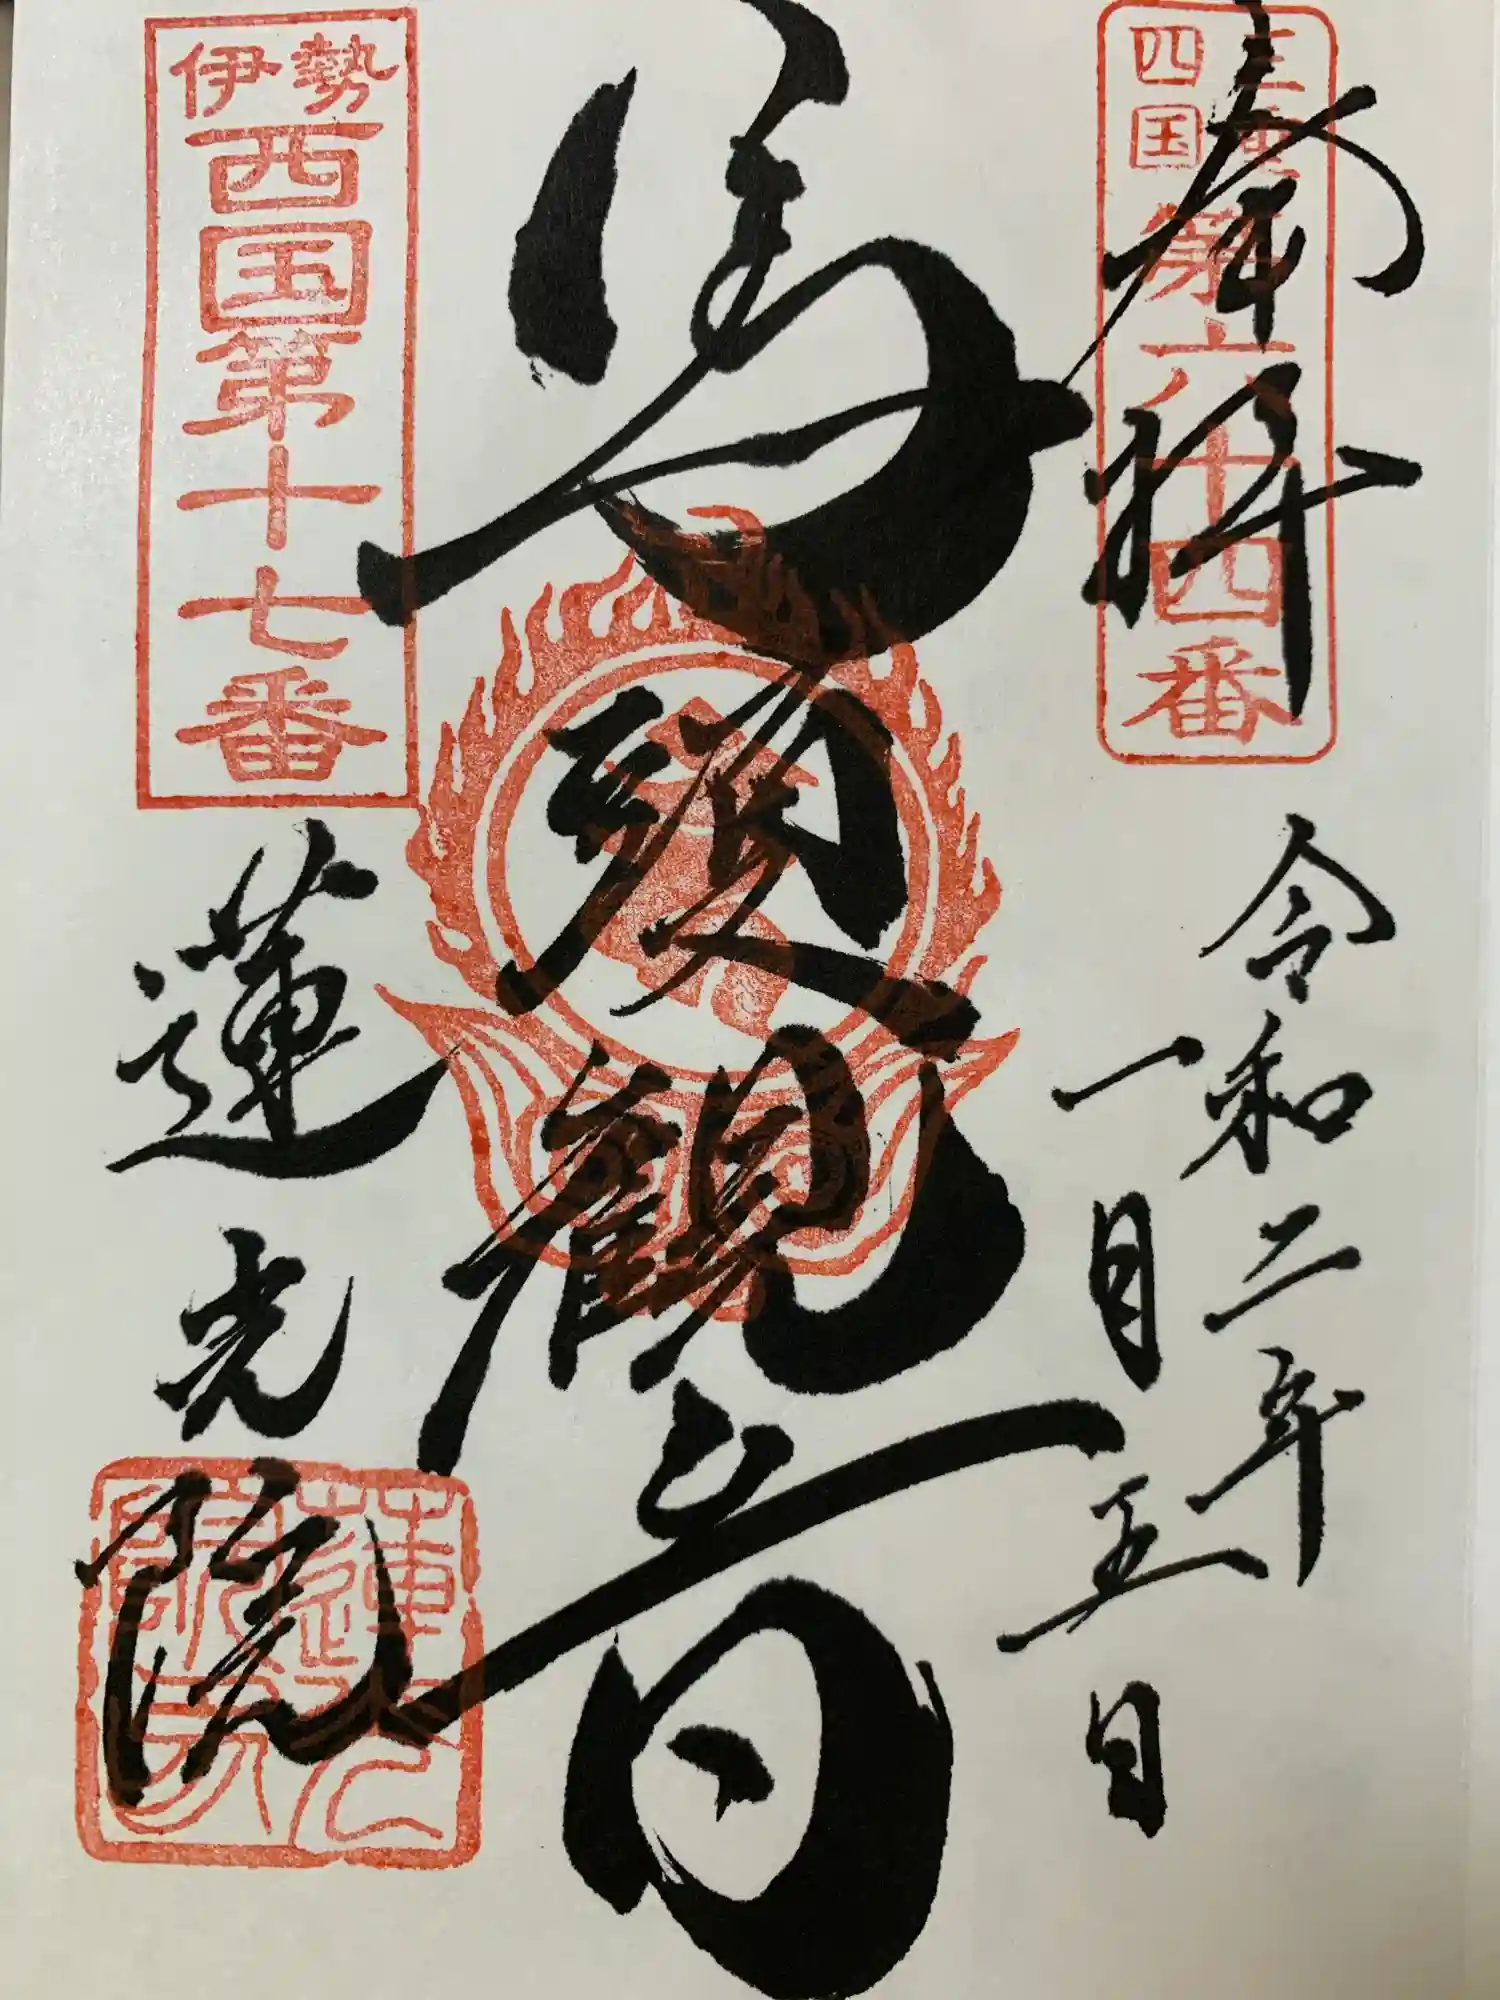 奉拝
三重
四国
第六十四番
令和二年
一月五日
馬頭觀音
伊勢
西国第十七番
蓮光院